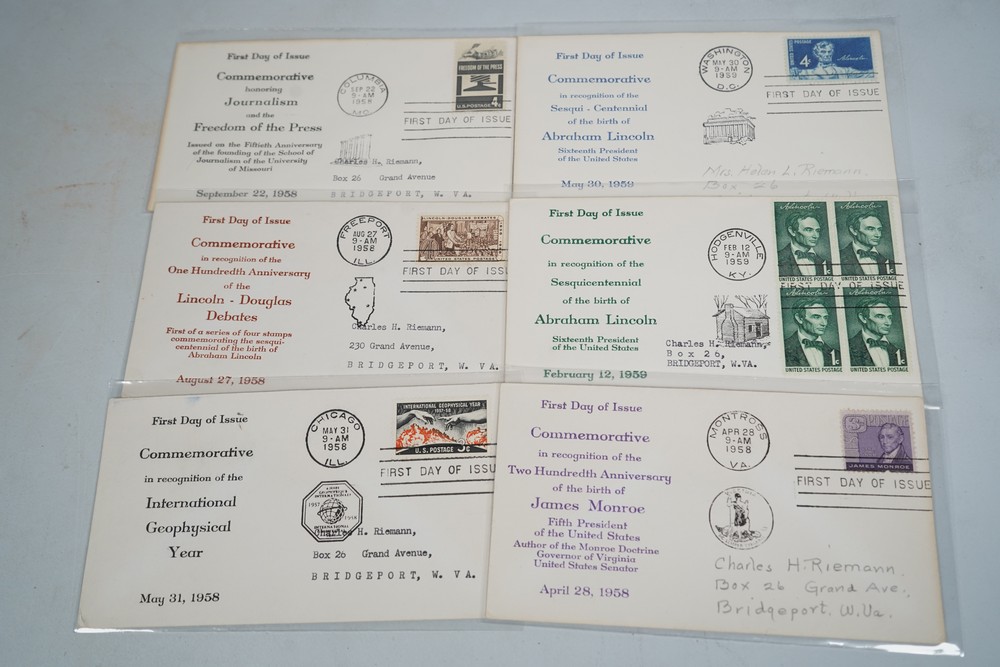 First Day of Issue
Commemorative
honoring
Journalism
and the
Freedom of the Press
Issued on the Fiftieth Anniversary
of the founding of the School of
Journalism of the University
of Missouri
September 22, 1958
COLUMBIA
SEP 22
9-AM
1958
MO.
FREEDOM OF THE PRESS
U.S. POSTAGE 4c
FIRST DAY OF ISSUE
Charles H. Riemann,
Box 26 Grand Avenue
BRIDGEPORT, W. VA.
First Day of Issue
Commemorative
in recognition of the
Sesqui - Centennial
of the birth of
Abraham Lincoln
Sixteenth President
of the United States
May 30, 1959
WASHINGTON
MAY 30
9-AM
1959
D.C.
UNITED STATES POSTAGE
4c
A. Lincoln
FIRST DAY OF ISSUE
Mrs. Helen L. Riemann.
Box 26
First Day of Issue
Commemorative
in recognition of the
One Hundredth Anniversary
of the
Lincoln - Douglas
Debates
First of a series of four stamps
commemorating the sesqui-
centennial of the birth of
Abraham Lincoln
August 27, 1958
FREEPORT
AUG 27
9-AM
1958
ILL.
LINCOLN-DOUGLAS DEBATES
UNITED STATES POSTAGE
FIRST DAY OF ISSU
Charles H. Riemann,
230 Grand Avenue,
BRIDGEPORT, W. VA.
First Day of Issue
Commemorative
in recognition of the
Sesquicentennial
of the birth of
Abraham Lincoln
Sixteenth President
of the United States
February 12, 1959
HODGENVILLE
FEB 12
9-AM
1959
KY.
A. Lincoln
A. Lincoln
1c
1c
UNITED STATES POSTAGE
UNITED STATES POSTAGE
FIRST DAY OF ISSUE
A. Lincoln
A. Lincoln
1c
1c
UNITED STATES POSTAGE
UNITED STATES POSTAGE
Charles H. Riemann,
Box 26,
BRIDGEPORT, W.VA.
First Day of Issue
Commemorative
in recognition of the
International
Geophysical
Year
May 31, 1958
CHICAGO
MAY 31
9-AM
1958
ILL.
INTERNATIONAL GEOPHYSICAL YEAR
1957-58
U.S. POSTAGE 3c
FIRST DAY OF ISSU
GEOPHYSIQUE
INTERNATIONALE
1957 1958
INTERNATIONAL
Charles H. Riemann,
Box 26 Grand Avenue,
BRIDGEPORT, W. VA.
First Day of Issue
Commemorative
in recognition of the
Two Hundredth Anniversary
of the birth of
James Monroe
Fifth President
of the United States
Author of the Monroe Doctrine
Governor of Virginia
United States Senator
April 28, 1958
MONTROSS
APR 28
9-AM
1958
VA.
JAMES MONROE
FIRST DAY OF ISSUE
Charles H. Riemann.
Box 26 Grand Ave.,
Bridgeport. W.Va.